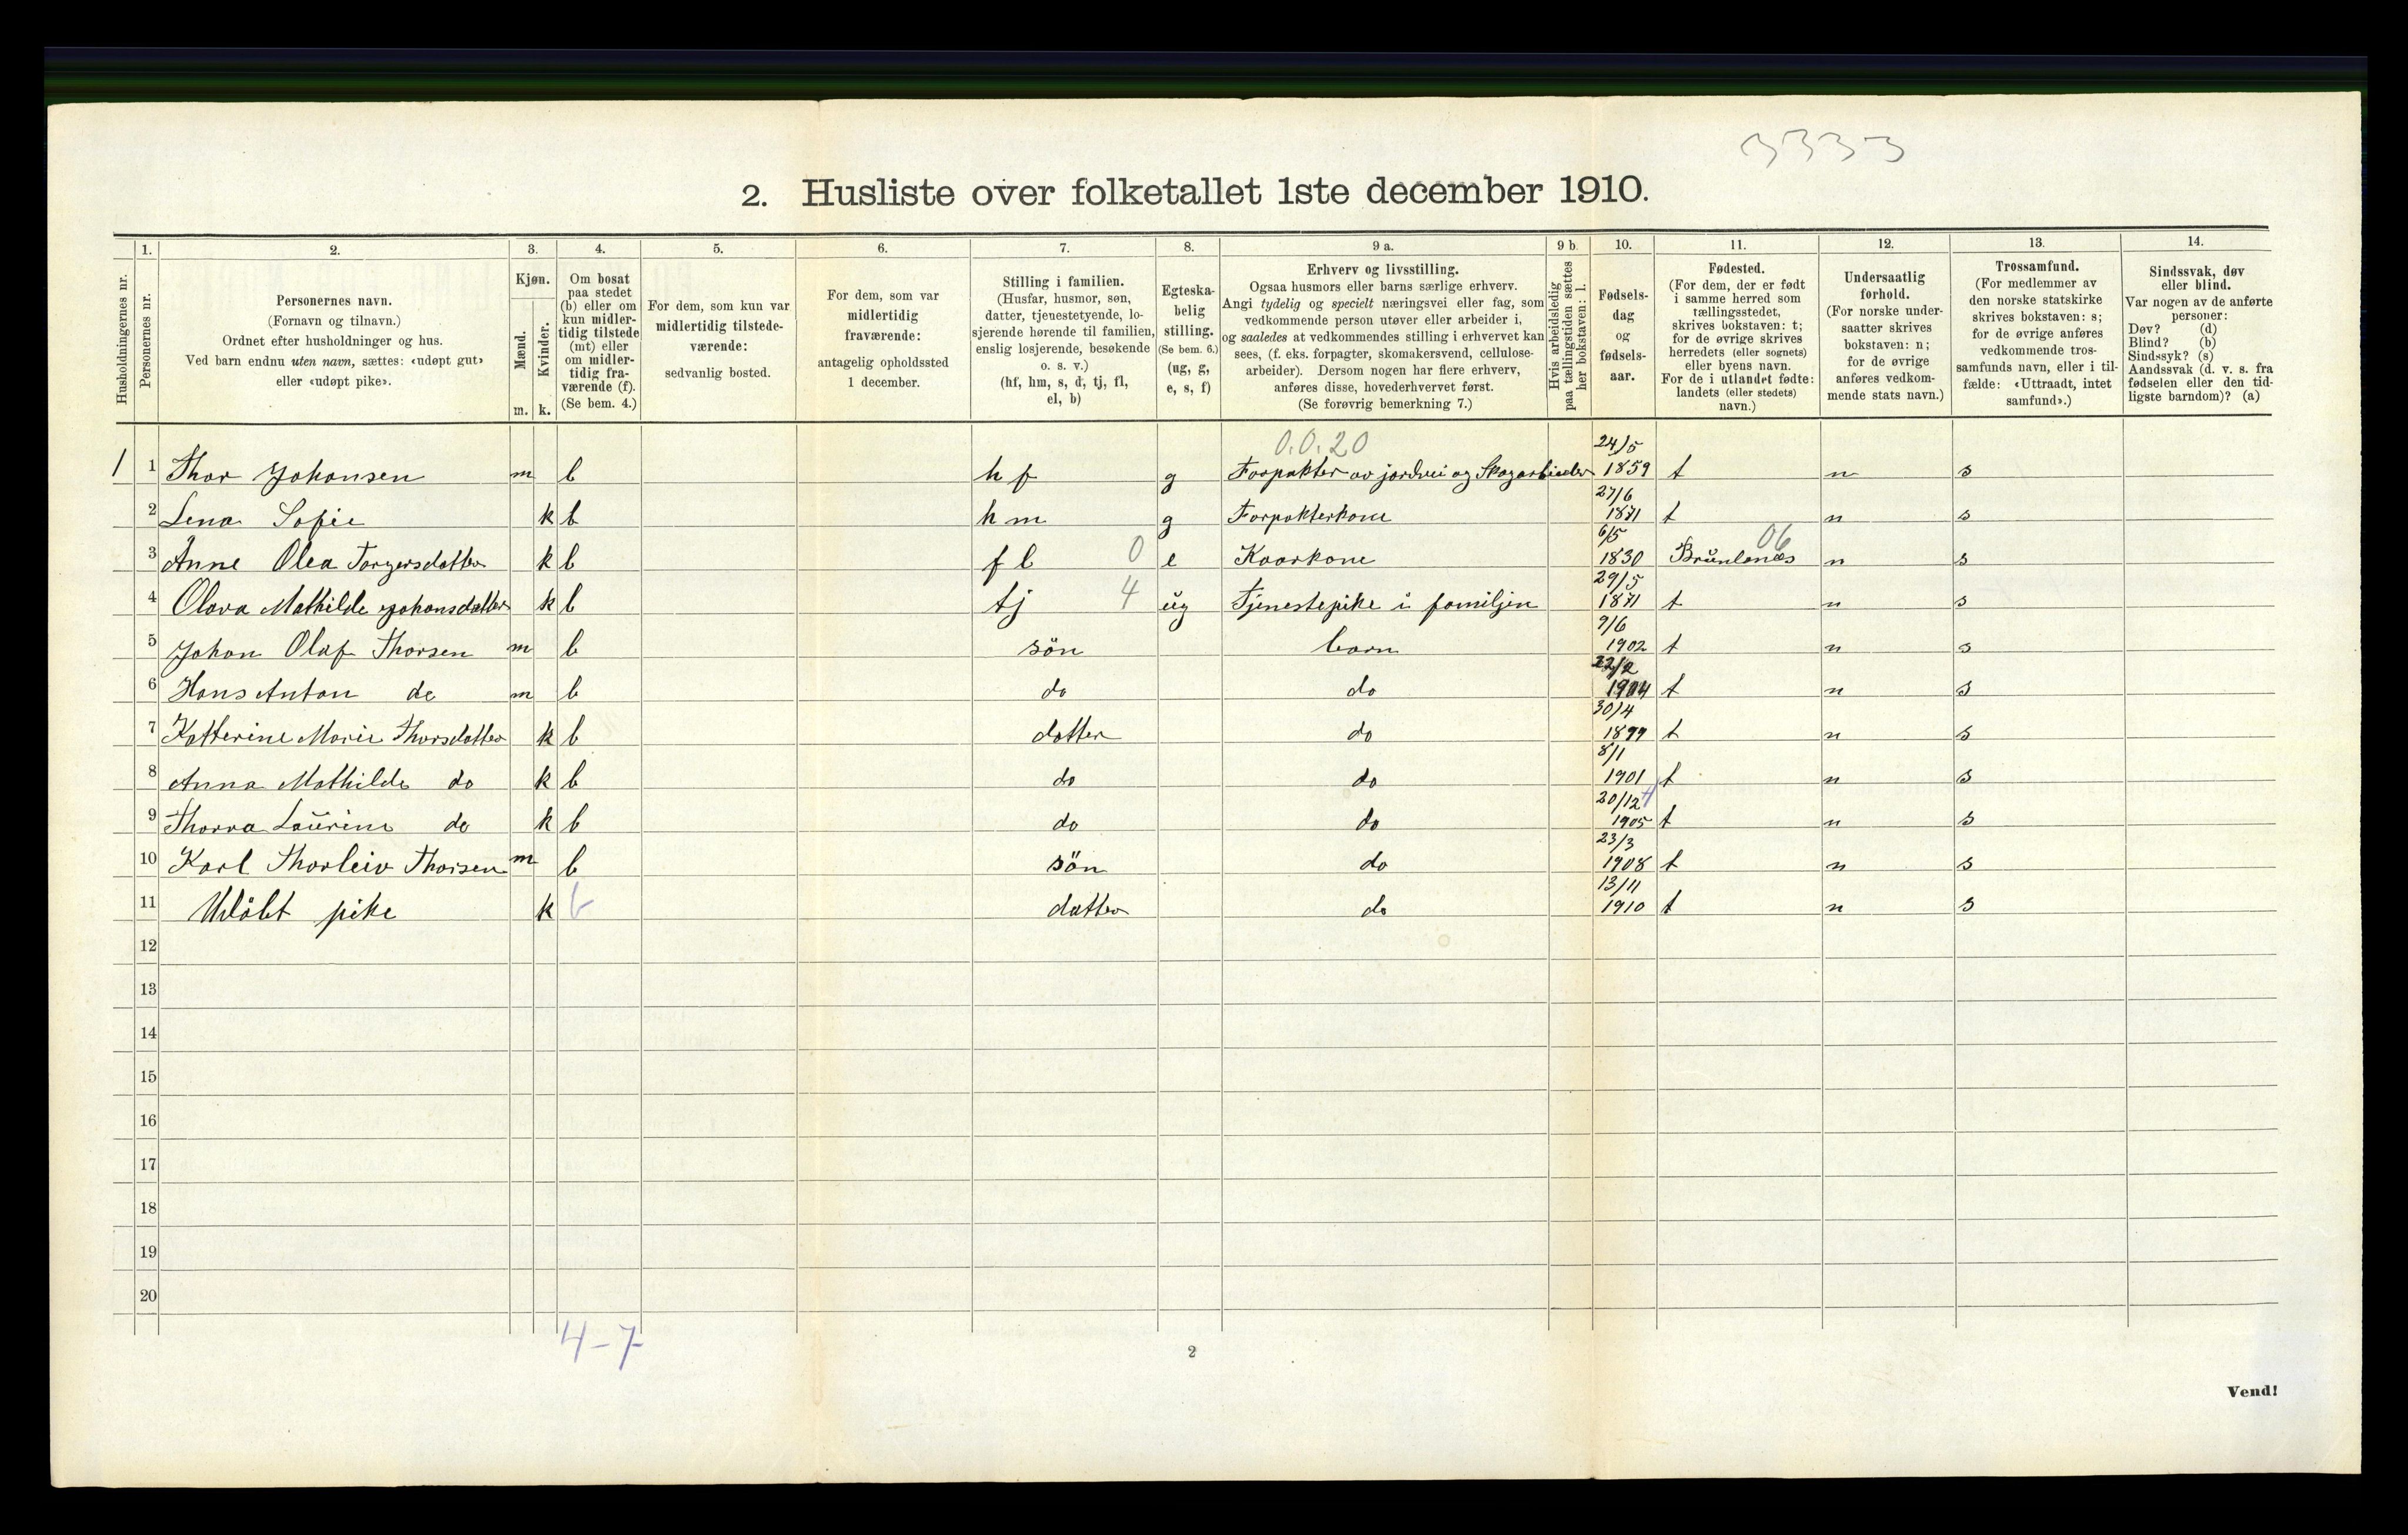 3333
2. Husliste over folketallet 1ste december 1910.
Husholdningernes nr.
1. Personernes nr.
2. Personernes navn.
(Fornavn og tilnavn.)
Ordnet efter husholdninger og hus.
Ved barn endnu uten navn, sættes: «udøpt gut»
eller «udøpt pike».
3. Kjøn.
Mænd. Kvinder.
m. k.
4. Om bosat
paa stedet
(b) eller om
kun midler-
tidig tilstede
(mt) eller
om midler-
tidig fra-
værende (f).
(Se bem. 4.)
5. For dem, som kun var
midlertidig tilstede-
værende:
sedvanlig bosted.
6. For dem, som var
midlertidig
fraværende:
antagelig opholdssted
1 december.
7. Stilling i familien.
(Husfar, husmor, søn,
datter, tjenestetyende, lo-
sjerende hørende til familien,
enslig losjerende, besøkende
o. s. v.)
(hf, hm, s, d, tj, fl,
el, b)
8. Egteska-
belig
stilling.
(Se bem. 6.)
(ug, g,
e, s, f)
9 a. Erhverv og livsstilling.
Ogsaa husmors eller barns særlige erhverv.
Angi tydelig og specielt næringsvei eller fag, som
vedkommende person utøver eller arbeider i,
og saaledes at vedkommendes stilling i erhvervet kan
sees, (f. eks. forpagter, skomakersvend, cellulose-
arbeider). Dersom nogen har flere erhverv,
anføres disse, hovederhvervet først.
(Se forøvrig bemerkning 7.)
9 b. Hvis arbeidsledig
paa tællingstiden sættes
her bokstaven: l.
10. Fødsels-
dag
og
fødsels-
aar.
11. Fødested.
(For dem, der er født
i samme herred som
tællingsstedet,
skrives bokstaven: t;
for de øvrige skrives
herredets (eller sognets)
eller byens navn.
For de i utlandet fødte:
landets (eller stedets)
navn.)
12. Undersaatlig
forhold.
(For norske under-
saatter skrives
bokstaven: n;
for de øvrige
anføres vedkom-
mende stats navn.)
13. Trossamfund.
(For medlemmer av
den norske statskirke
skrives bokstaven: s;
for de øvrige anføres
vedkommende tros-
samfunds navn, eller i til-
fælde: «Uttraadt, intet
samfund».)
14. Sindssvak, døv
eller blind.
Var nogen av de anførte
personer:
Døv? (d)
Blind? (b)
Sindssyk? (s)
Aandssvak (d. v. s. fra
fødselen eller den tid-
ligste barndom)? (a)
0.0.20
1 1 Thor Johansen m b hf g Forpakter av jordvei og Skogarbieder 24/5 1859 t n s
2 Lena Sofie k b hm g Forpakterkone 27/6 1871 t n s
3 Anne Olea Torgersdatter k b fl 0 e Kaarkone 6/5 1830 Brunlanæs 06 n s
4 Olava Mathilde Johansdatter k b tj 4 ug Tjenestepike i familjen 29/5 1871 t n s
5 Johan Olaf Thorsen m b sön barn 9/6 1902 t n s
6 Hans Anton do m b do do 22/2 1904 t n s
7 Katterine Marie Thorsdatter k b datter do 30/4 1899 t n s
8 Anna Mathilde do k b do do 8/1 1901 t n s
9 Thorra Laurine do k b do do 20/12 1905 t n s
10 Karl Thorleiv Thorsen m b sön do 23/3 1908 t n s
11 Udöbt pike k b datter do 13/11 1910 t n s
12
13
14
15
16
17
18
19
20
4-7
2
Vend!